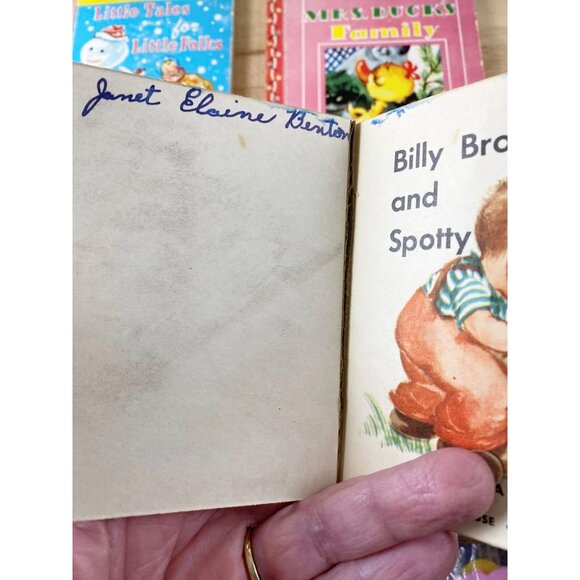 Little Tales
for
Little Folks
MRS. DUCKS
Family
Janet Elaine Benton
Billy Bro
and
Spotty